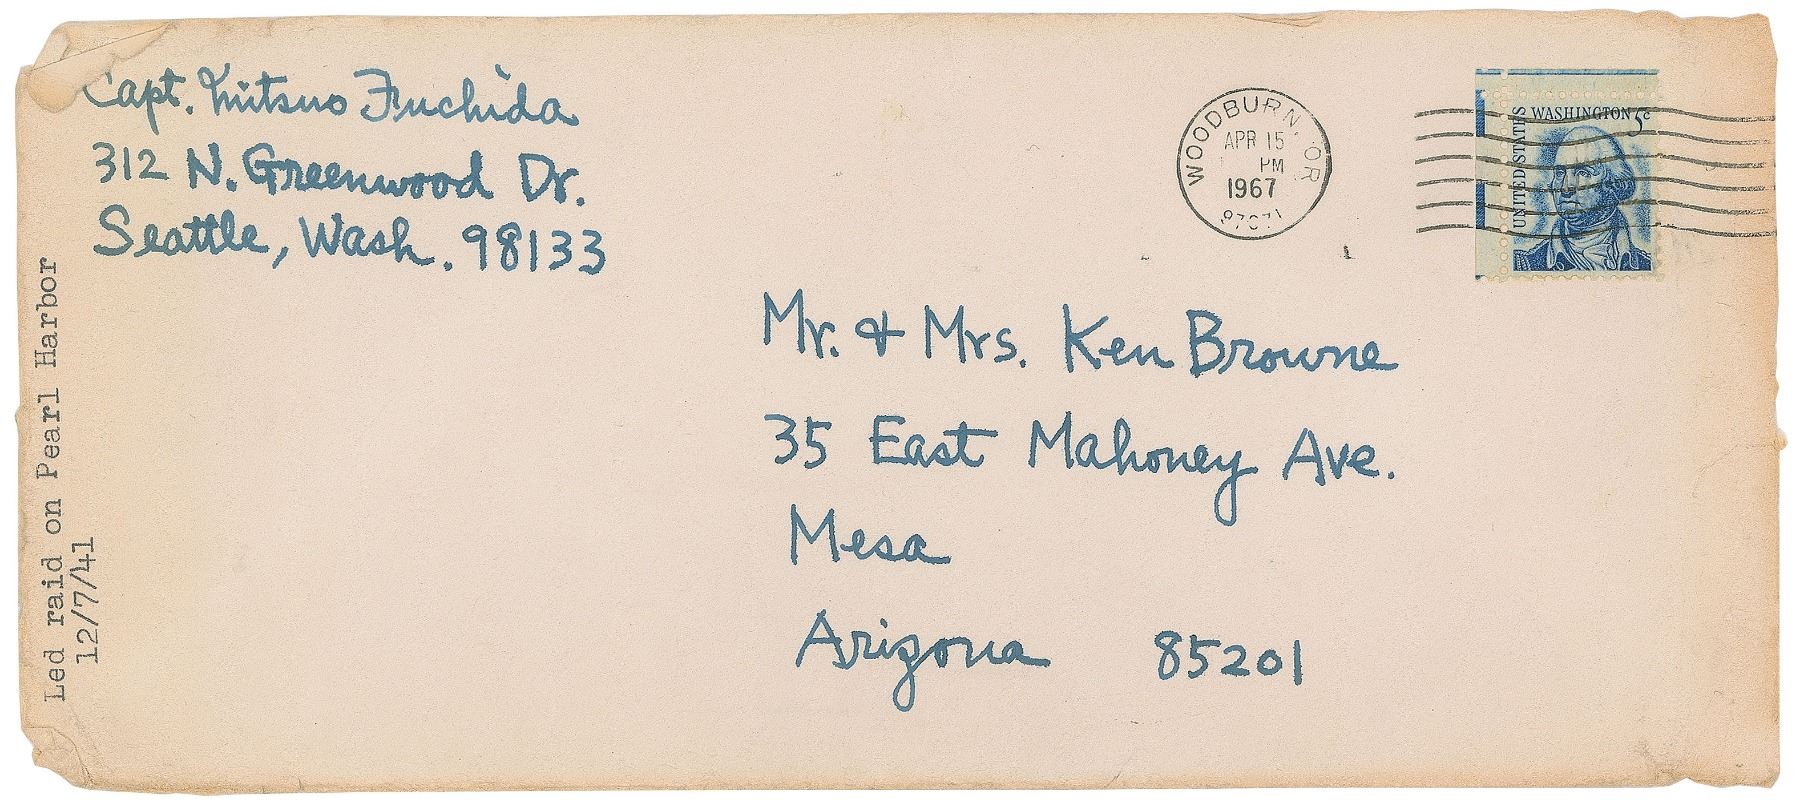 Capt. Mitsuo Fuchida
312 N. Greenwood Dr.
Seattle, Wash. 98133
WOODBURN, OR
APR 15
PM
1967
WASHINGTON 5c
UNITED STATES
Mr. & Mrs. Ken Browne
35 East Mahoney Ave.
Mesa
Arizona 85201
Led raid on Pearl Harbor
12/7/41